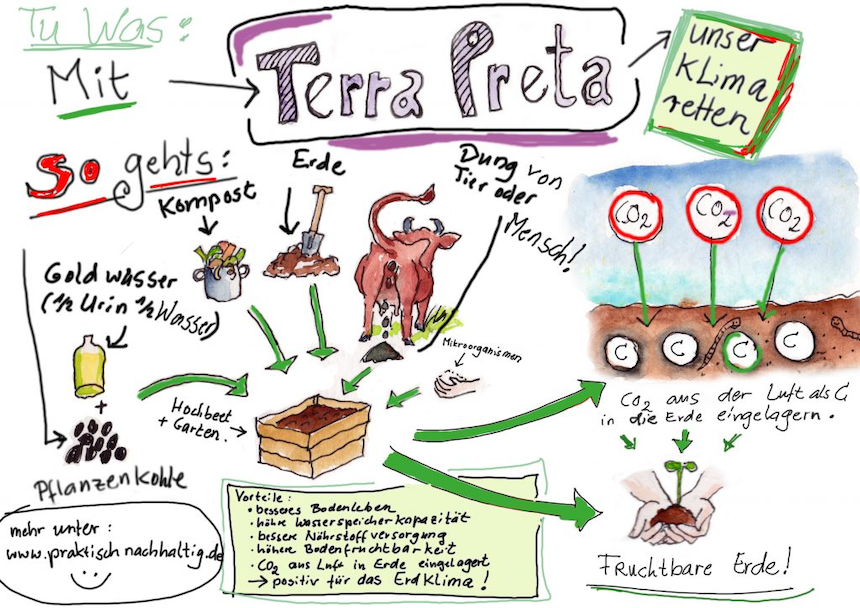 Tu Was:
Mit
Terra Preta
unser
Klima
retten
So gehts:
Kompost
Erde
Dung von
Tier oder
Mensch!
Goldwasser
(½ Urin ½ Wasser)
+
Pflanzenkohle
Mikroorganismen
Hochbeet
+ Garten.
CO2 CO2 CO2
C C C C
CO2 aus der Luft als C
in die Erde eingelagern.
Fruchtbare Erde!
Vorteile:
• besseres Bodenleben
• höhre Wasserspeicherkapazität
• bessere Nährstoffversorgung
• höhere Bodenfruchtbarkeit
• CO2 aus Luft in Erde eingelagert
→ positiv für das Erdklima!
mehr unter:
www.praktischnachhaltig.de